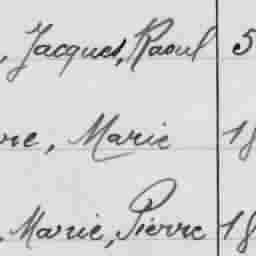 , Jacques, Raoul 5
re, Marie 18
. Marie, Pierre 18